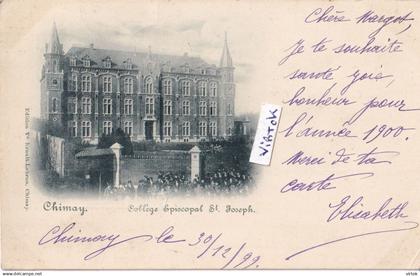 Chère Margot,
Je te souhaite
santé joie,
bonheur pour
l'année 1900.
Merci de ta
carte
Elisabeth
VibTck
Edition Vve
Chimay.
Chimay. Collège Episcopal St. Joseph.
Chimay le 30/12/99.